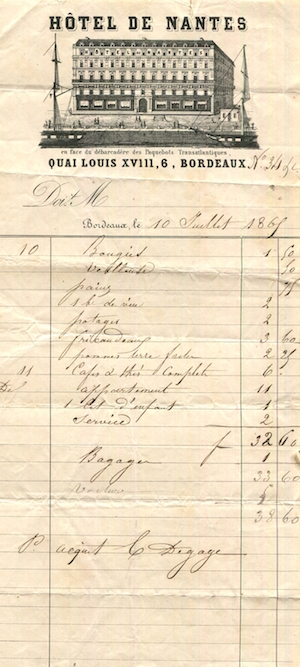 HÔTEL DE NANTES
en face du débarcadère des Paquebots Transatlantiques
QUAI LOUIS XVIII, 6, BORDEAUX.
Doit M
Bordeaux, le 10 Juillet 186
10 Bougies 1 50
50
pain 75
1 b. de vin 2
potages 2
fricandeau 3 60
pommes terre 2 25
11 Cafés & thés Complets 6
appartement 11
1 lit d'enfant 1
Service 2
32 60
Bagages 1
33 60
Voiture 5
38 60
Pr acquit